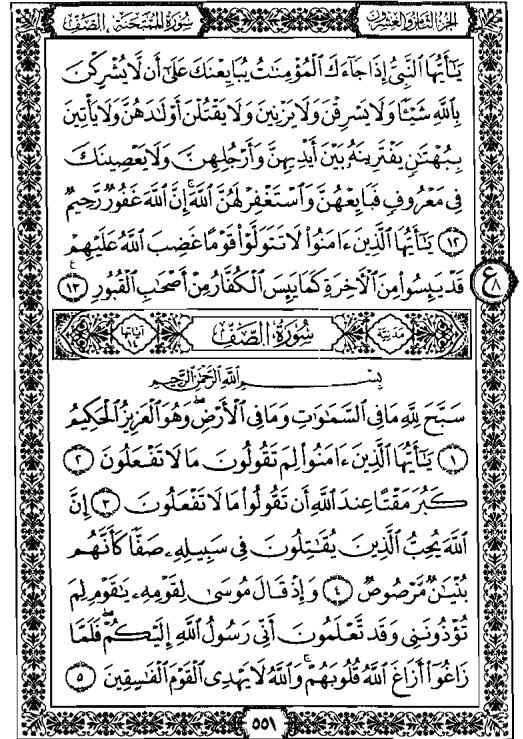 سورة الممتحنة ، الصف
الجزء الثامن والعشرون
يَـٰٓأَيُّهَا ٱلنَّبِىُّ إِذَا جَآءَكَ ٱلْمُؤْمِنَـٰتُ يُبَايِعْنَكَ عَلَىٰٓ أَن لَّا يُشْرِكْنَ
بِٱللَّهِ شَيْـًٔا وَلَا يَسْرِقْنَ وَلَا يَزْنِينَ وَلَا يَقْتُلْنَ أَوْلَـٰدَهُنَّ وَلَا يَأْتِينَ
بِبُهْتَـٰنٍ يَفْتَرِينَهُۥ بَيْنَ أَيْدِيهِنَّ وَأَرْجُلِهِنَّ وَلَا يَعْصِينَكَ
فِى مَعْرُوفٍ فَبَايِعْهُنَّ وَٱسْتَغْفِرْ لَهُنَّ ٱللَّهَ ۖ إِنَّ ٱللَّهَ غَفُورٌ رَّحِيمٌ
١٢ يَـٰٓأَيُّهَا ٱلَّذِينَ ءَامَنُوا۟ لَا تَتَوَلَّوْا۟ قَوْمًا غَضِبَ ٱللَّهُ عَلَيْهِمْ
قَدْ يَئِسُوا۟ مِنَ ٱلْـَٔاخِرَةِ كَمَا يَئِسَ ٱلْكُفَّارُ مِنْ أَصْحَـٰبِ ٱلْقُبُورِ ١٣
ع ٨
مدنية سورة الصف آياتها ١٤
بسم الله الرحمن الرحيم
سَبَّحَ لِلَّهِ مَا فِى ٱلسَّمَـٰوَٰتِ وَمَا فِى ٱلْأَرْضِ ۖ وَهُوَ ٱلْعَزِيزُ ٱلْحَكِيمُ
١ يَـٰٓأَيُّهَا ٱلَّذِينَ ءَامَنُوا۟ لِمَ تَقُولُونَ مَا لَا تَفْعَلُونَ ٢
كَبُرَ مَقْتًا عِندَ ٱللَّهِ أَن تَقُولُوا۟ مَا لَا تَفْعَلُونَ ٣ إِنَّ
ٱللَّهَ يُحِبُّ ٱلَّذِينَ يُقَـٰتِلُونَ فِى سَبِيلِهِۦ صَفًّا كَأَنَّهُم
بُنْيَـٰنٌ مَّرْصُوصٌ ٤ وَإِذْ قَالَ مُوسَىٰ لِقَوْمِهِۦ يَـٰقَوْمِ لِمَ
تُؤْذُونَنِى وَقَد تَّعْلَمُونَ أَنِّى رَسُولُ ٱللَّهِ إِلَيْكُمْ ۖ فَلَمَّا
زَاغُوٓا۟ أَزَاغَ ٱللَّهُ قُلُوبَهُمْ ۚ وَٱللَّهُ لَا يَهْدِى ٱلْقَوْمَ ٱلْفَـٰسِقِينَ ٥
٥٥١